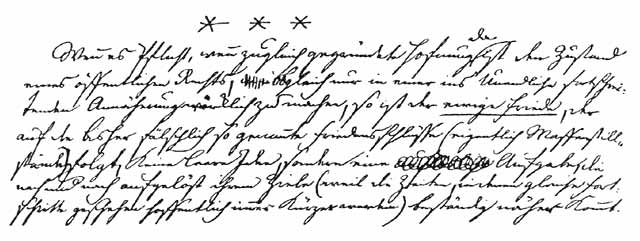 * * *
Wenn es Pflicht, wenn zugleich gegründete Hofnung da ist den Zustand
eines öffentlichen Rechts, obgleich nur in einer ins Unendliche fortschrei-
tenden Annäherung wirklich zu machen, so ist der ewige Friede, der
auf die bisher fälschlich so genannte Friedensschlüsse (eigentlich Waffenstill-
stände) folgt, keine leere Idee, sondern eine Aufgabe, die
nach und nach aufgelöst ihrem Ziele (weil die Zeiten, in denen gleiche Fort-
schritte geschehen hoffentlich immer kürzer werden) beständig näher kommt.